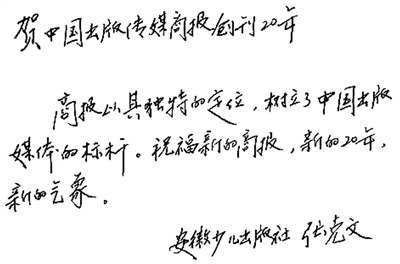 贺中国出版传媒商报创刊20年
商报以其独特的定位，树立了中国出版
媒体的标杆。祝福新的商报，新的20年，
新的气象。
安徽少儿出版社 张克文